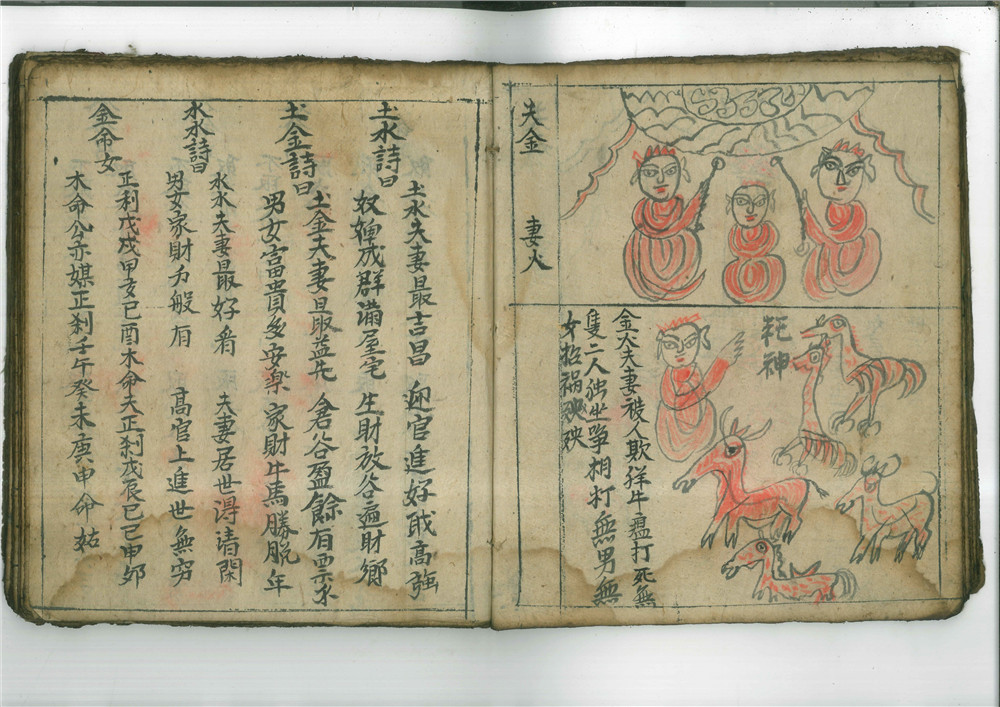 夫金 妻火
粍神
金火夫妻被人欺牂牛瘟打死無
隻二人独坐爭相打無男無
女招禍殃殃
土水詩曰
土水夫妻最吉昌 迎官進好戝高強
奴婢成群滿屋宅 生財放谷遍財鄉
土金詩曰
土金夫妻最益先 倉谷盈餘有票子
男女富貴多安樂 家財牛馬勝脱年
水水詩曰
水水夫妻最好看 夫妻居世得清閑
男女家財力般有 高官上進世無窮
金命女
正利戊戌甲亥己酉木命夫正刹戊辰己巳申卯
木命公亦媒正刹壬午癸未庚申命姑